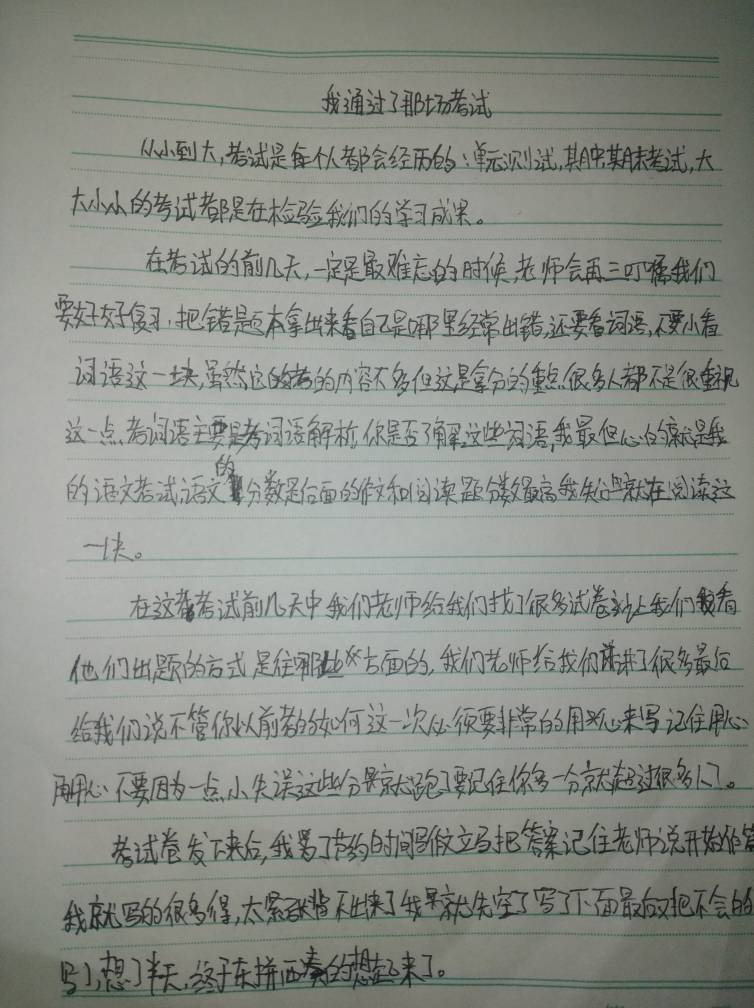 我通过了那场考试
从小到大,考试是每个人都会经历的:单元测试,其中其末考试,大
大小小的考试都是在检验我们的学习成果。
在考试的前几天,一定是最难忘的时候,老师会再三叮嘱我们
要好好复习,把错题本拿出来看自己是哪里经常出错,还要看词语,不要小看
词语这一块,虽然它的考的内容不多但这是拿分的重点很多人都不是很重视
这一点考词语主要是考词语解析,你是否了解这些词语,我最但心的就是我
的语文考试语文的分数是后面的作文和阅读题分数最高我失分就在阅读这
一块。
在这考试前几天中我们老师给我们找了很多试卷让我们看
他们出题的方式是往哪些方面的,我们老师给我们讲了很多最后
给我们说不管你以前考的如何这一次必须要非常的用心来写记住用心
用心不要因为一点小失误这些分就跑了要记住你多一分就超过很多人了。
考试卷发下来后,我为了节约时间写立马把答案记住老师说开始作答
我就写的很多得,太紧张背不出来了我就先空了写了下面最后又把不会的
写了,想了半天,终于东拼西凑的想起来了。